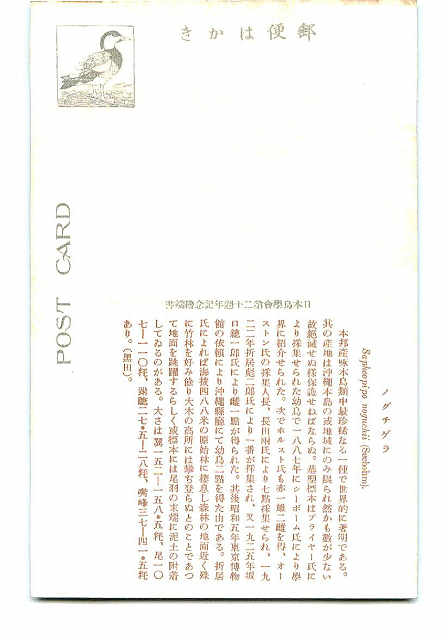 郵便はかき
POST CARD
日本鳥學會第二十週年記念繪端書
ノグチゲラ
Sapheopipo noguchii (Seebohm).
本邦産啄木鳥類中最珍稀なる一種で世界的に著明である。
其の産地は沖繩本島の或地域にのみ限られ然かも數が少ない
故絶滅せぬ樣保護せねばならぬ。基型標本はプライヤー氏に
より採集せられた幼鳥で一八八七年にシーボーム氏により學
界に紹介せられた。次でホルスト氏も亦一雄二雌を得、オー
ストン氏の採集人長、長田兩氏により七點採集せられ、一九
二二年折居彪二郎氏により一番が採集され、又一九二五年坂
口總一郎氏により雌一點が得られた。其後昭和五年東京博物
館の依頼により沖繩縣廳にて幼鳥二點を得た由である。折居
氏によれば海拔四八八米の原始林に棲息し森林の地面近く殊
に竹林を好み餘り大木の高所には攀ぢ登らぬとのことであつ
て地面を跳躍するらしく或標本には尾羽の末端に泥土の附着
してゐるのがある。大さは翼一五二—一五八•五粍、尾一〇
七—一一〇粍、跗蹠二七•五—二八粍、嘴峰三七—四一•五粍
あり。(黒田)。